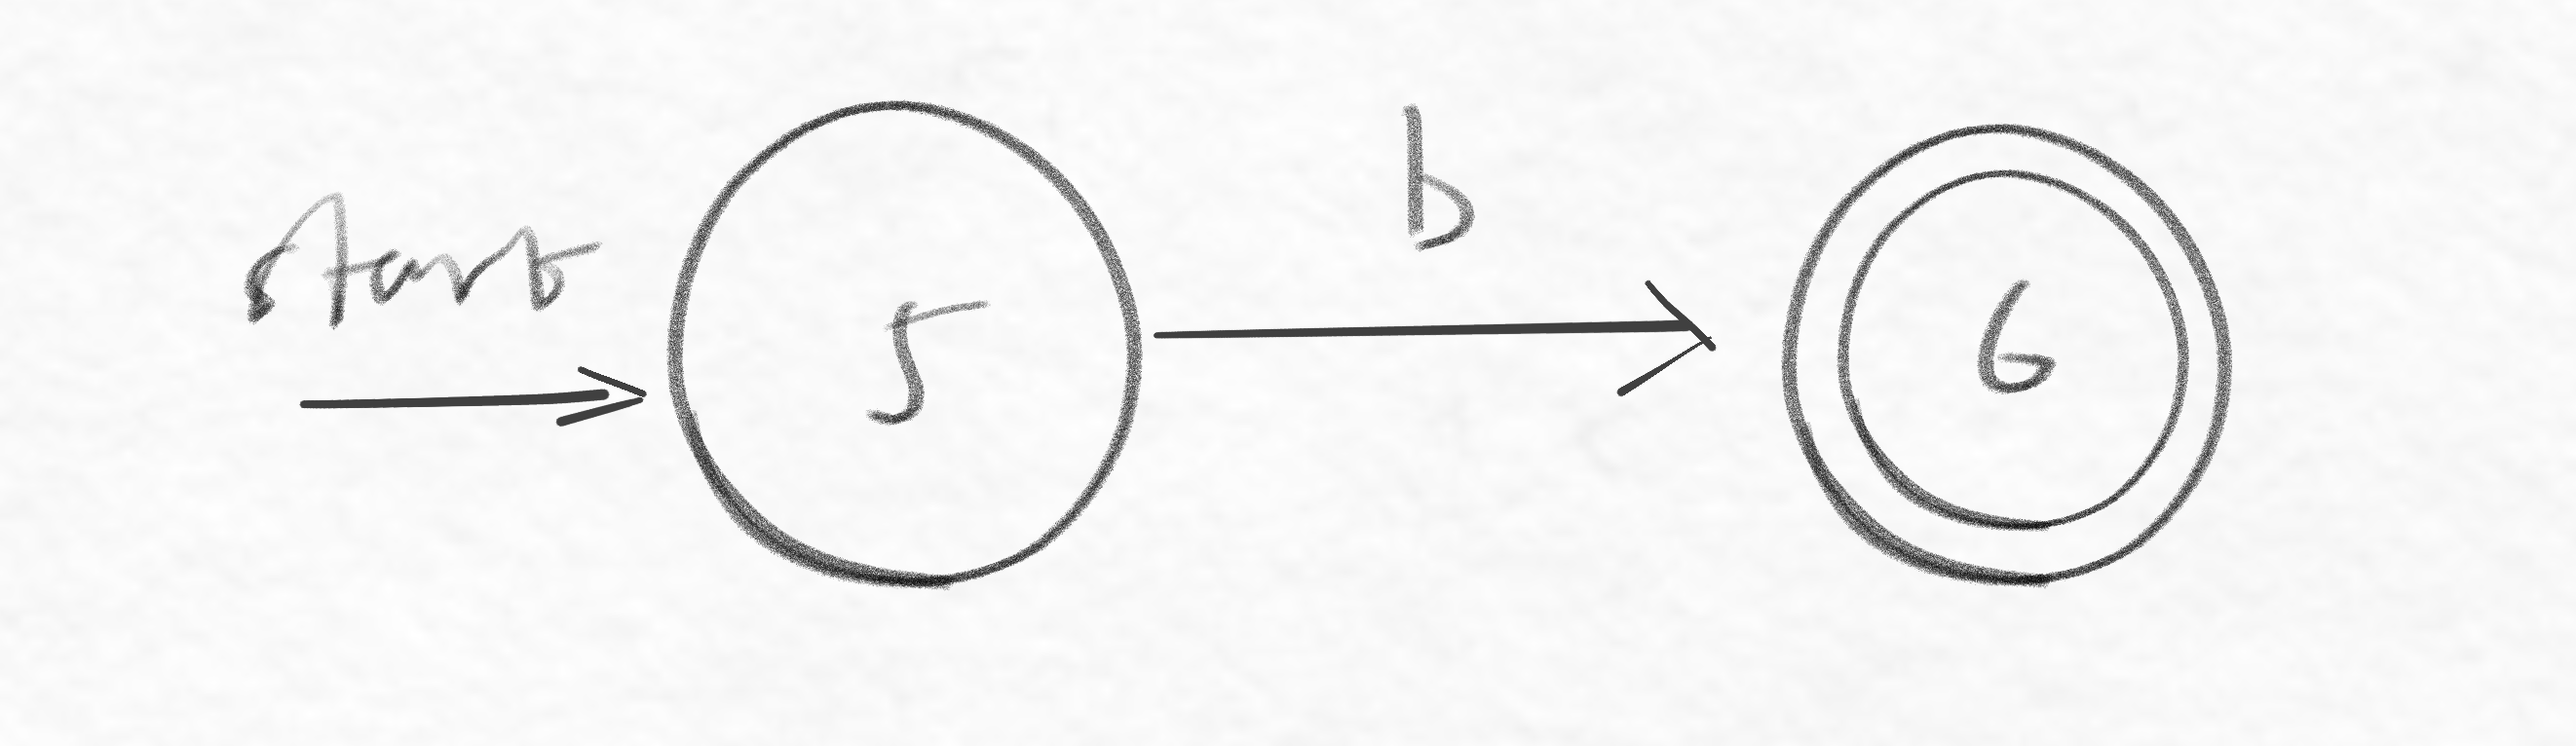 start
5
b
6